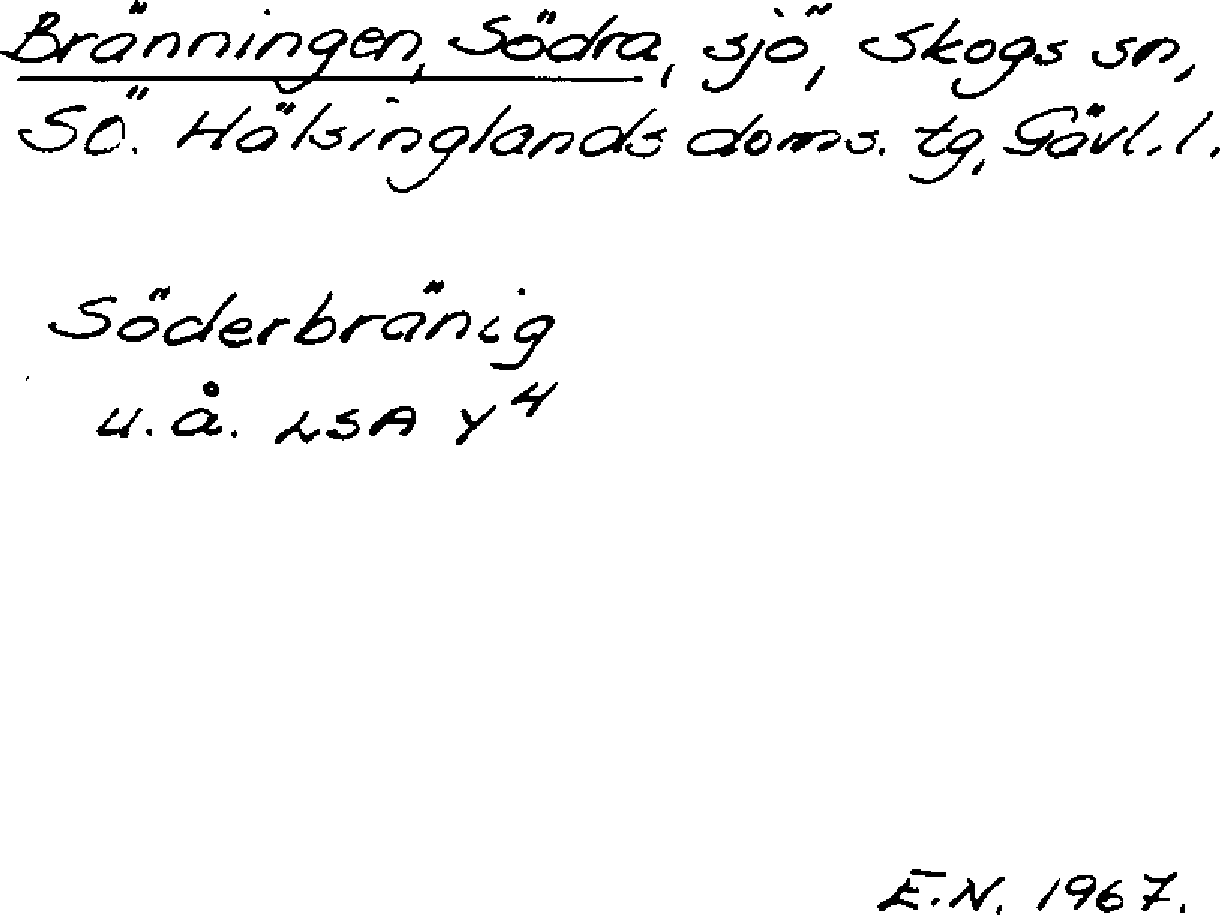 Bränningen, Södra, sjö, Skogs sn,
SÖ. Hälsinglands doms. tg, Gävl. l.
Söderbränig
u. å. LSA Y⁴
E.N. 1967.